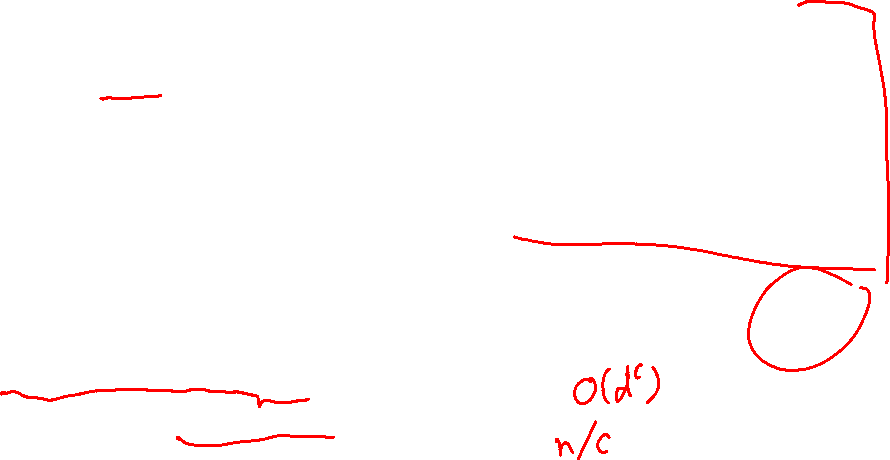 O(d^c)
n/c